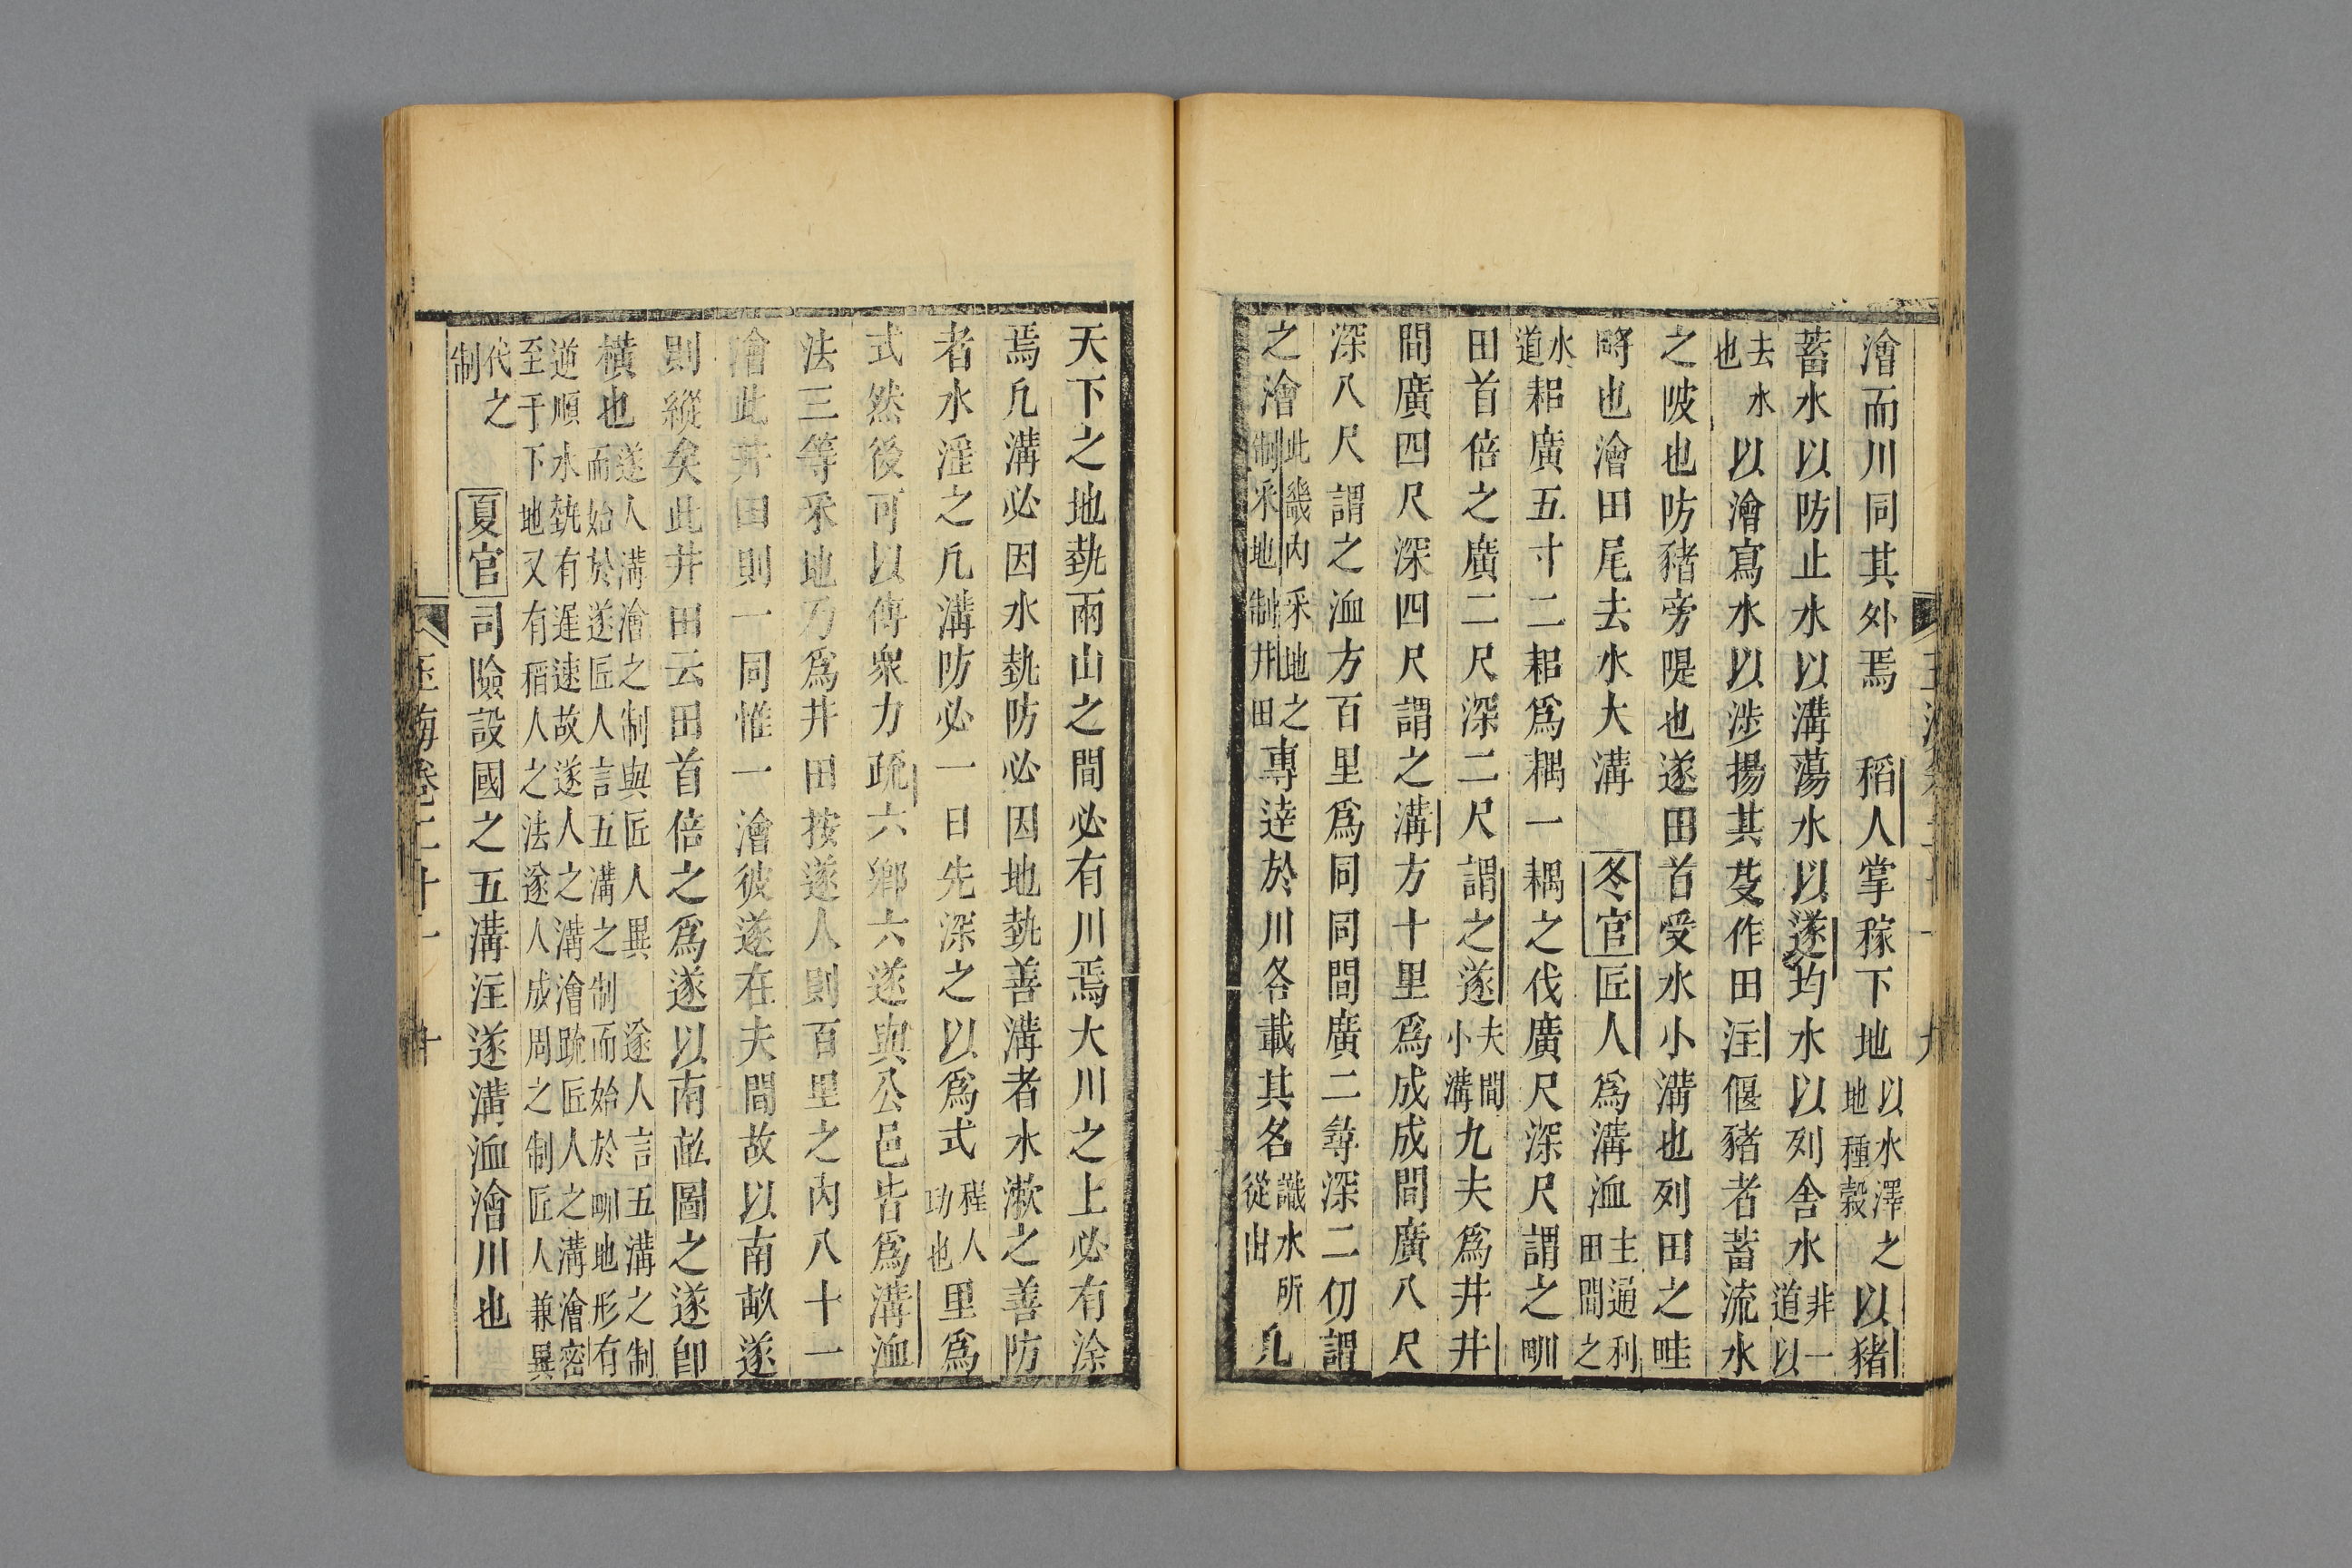 澮而川同其外焉　稻人掌稼下地以水澤之地種穀以豬
蓄水以防止水以溝蕩水以遂均水以列舍水非一道以
去水也以澮寫水以涉揚其芟作田注偃豬者蓄流水
之陂也防豬旁隄也遂田首受水小溝也列田之畦
㽟也澮田尾去水大溝　冬官匠人爲溝洫主通利田間之
水道耜廣五寸二耜爲耦一耦之伐廣尺深尺謂之甽
田首倍之廣二尺深二尺謂之遂夫間小溝九夫爲井井
間廣四尺深四尺謂之溝方十里爲成成間廣八尺
深八尺謂之洫方百里爲同同間廣二尋深二仞謂
之澮此畿內采地之制采地制井田專達於川各載其名識水所從出凡
天下之地埶兩山之間必有川焉大川之上必有涂
焉凡溝必因水埶防必因地埶善溝者水漱之善防
者水淫之凡溝防必一日先深之以爲式程人功也里爲
式然後可以傳衆力疏六鄉六遂與公邑皆爲溝洫
法三等采地乃爲井田按遂人則百里之內八十一
澮此井田則一同惟一澮彼遂在夫間故以南畝遂
則縱矣此井田云田首倍之爲遂以南畝圖之遂卽
橫也遂人溝澮之制與匠人異　遂人言五溝之制而始於遂匠人言五溝之制而始於甽地形有
逆順水埶有遲速故遂人之溝澮䟽匠人之溝澮密至于下地又有稻人之法遂人成周之制匠人兼異
代之制　夏官司險設國之五溝注遂溝洫澮川也
玉海卷二十一　十